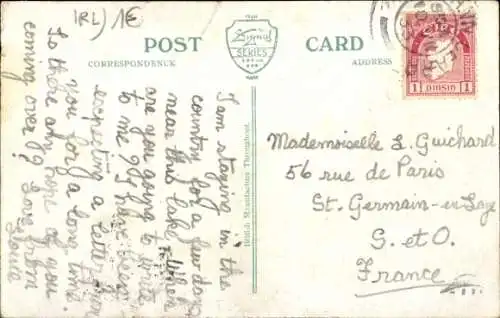 IRL) 1E
POST
CARD
CORRESPONDENCE
ADDRESS
Signal
SERIES
British Manufacture Throughout.
1 PINGIN 1
I am staying in the
country for a few days
near this lake. When
are you going to write
to me? I have been
expecting a letter from
you for a long time.
Is there any hope of you
coming over? Love from
Mademoiselle L. Guichard
56 rue de Paris
St. Germain-en-Laye
S. et O.
France